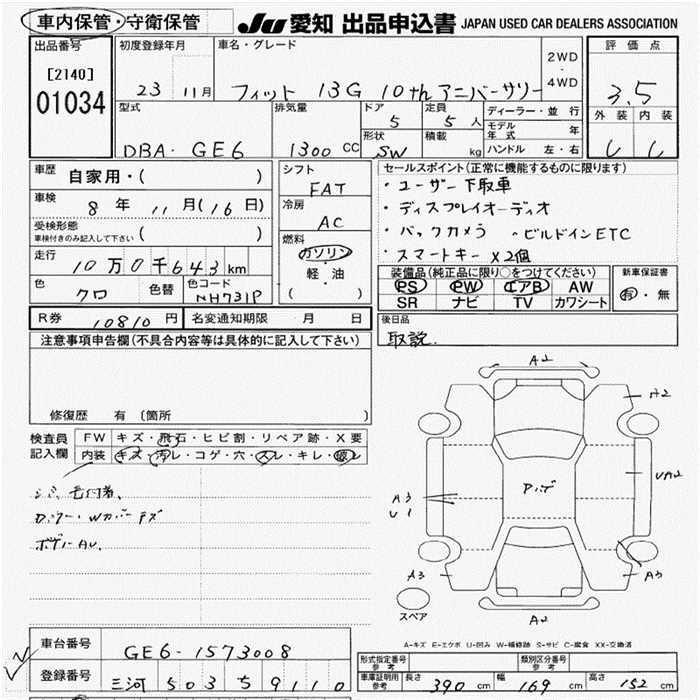 車内保管・守衛保管
JU 愛知 出品申込書 JAPAN USED CAR DEALERS ASSOCIATION
出品番号
[2140]
01034
初度登録年月
23 11月
車名・グレード
フィット 13G 10th アニバーサリー
2WD
・
4WD
評価点
3.5
外装 内装
型式
DBA・GE6
排気量
1300 CC
ドア
5
定員
5人
形状
SW
積載
kg
ディーラー・並行
モデル年式 年
ハンドル 左・右
車歴
自家用・( )
車検
8年 11月(16日)
受検形態
車検付きのみ記入して下さい ( )
走行
10万0千643km
色
クロ
色替
色コード
NH731P
シフト
FAT
冷房
AC
燃料
ガソリン
・
軽・油
( )
セールスポイント(正常に機能するものに限ります)
・ユーザー下取車
・ディスプレイオーディオ
・バックカメラ ・ビルドインETC
・スマートキー×2個
装備品(純正品に限り○をつけてください)
PS PW エアB AW
SR ナビ TV カワシート
新車保証書
有・無
R券 10810円
名変通知期限 ・月 日
後日品
取説.
注意事項申告欄(不具合内容等は具体的に記入して下さい)
修復歴 有 (箇所
検査員記入欄
FW キズ・飛石・ヒビ割・リペア跡・X要
内装 キズ・汚レ・コゲ・穴・スレ・キレ・破レ
シミ
A2
A2
UA2
A3
U1
A3
A3
A2
スペア
A-キズ E-エクボ U-凹み W-補修跡 S-サビ C-腐食 XX-交換済
車台番号
GE6-1573008
登録番号
三河 503 5 9110
形式指定番号
参考
類別区分番号
参考
車庫証明用
参考
長さ 390cm 幅 169cm 高さ 152cm